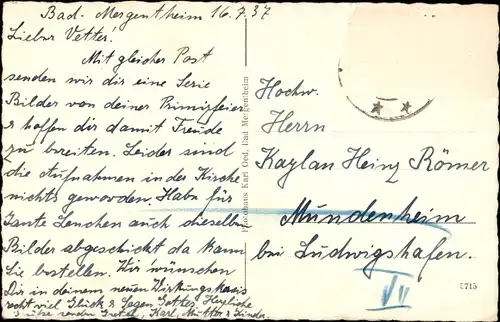 Bad-Mergentheim 16.7.37
Lieber Vetter!
Mit gleicher Post
senden wir dir eine Serie
Bilder von deiner Primizfeier
& hoffen dir damit Freude
zu bereiten. Leider sind
die Aufnahmen in der Kirche
nichts geworden. Habe für
Tante Lenchen auch dieselben
Bilder abgeschickt da kann
Sie bestellen. Wir wünschen
Dir in deinem neuen Wirkungskreis
recht viel Glück & Segen Gottes. Herzliche
Grüße senden Gretel, Karl, Mutter & Kinder
Photohaus Karl Oed, Bad Mergentheim
Hochw.
Herrn
Kaplan Heinz Römer
Mundenheim
bei Ludwigshafen.
5715